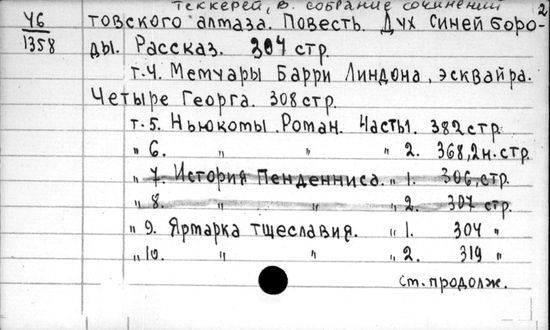 Теккерей, В. Собрание сочинений 2
Ч6 товского алмаза. Повесть. Дух Синей Боро-
1358 ды. Рассказ. 304 стр.
т.4. Мемуары Барри Линдона, эсквайра.
Четыре Георга. 308 стр.
т.5. Ньюкомы. Роман. Часть 1. 382 стр.
" 6. " " " 2. 368,2н.стр.
" 7. История Пенденниса. " 1. 306, стр.
" 8. " " " 2. 307 стр.
" 9. Ярмарка тщеславия. " 1. 304 "
" 10. " " " 2. 319 "
см. продолж.